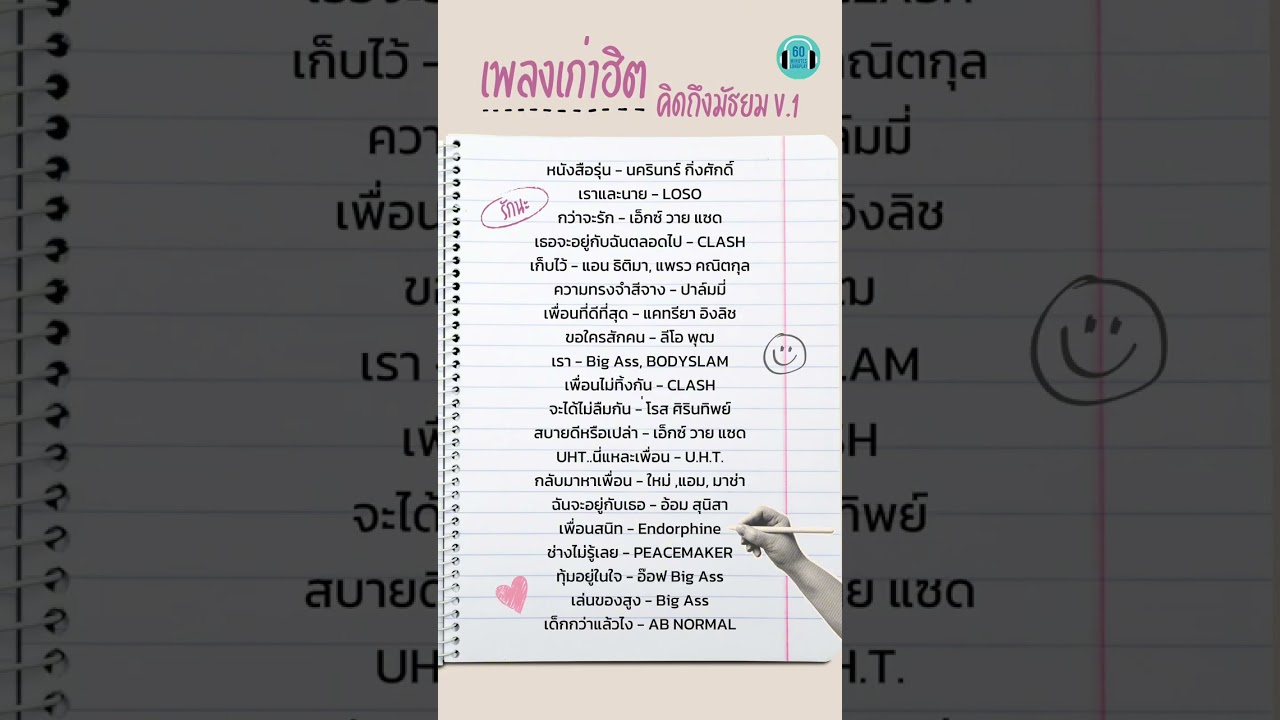 เพลงเก่าฮิต
คิดถึงมัธยม V.1
60
MINUTES
LONGPLAY
รักนะ
หนังสือรุ่น - นครินทร์ กิ่งศักดิ์
เราและนาย - LOSO
กว่าจะรัก - เอ็กซ์ วาย แซด
เธอจะอยู่กับฉันตลอดไป - CLASH
เก็บไว้ - แอน ธิติมา, แพรว คณิตกุล
ความทรงจำสีจาง - ปาล์มมี่
เพื่อนที่ดีที่สุด - แคทรียา อิงลิช
ขอใครสักคน - ลีโอ พุฒ
เรา - Big Ass, BODYSLAM
เพื่อนไม่ทิ้งกัน - CLASH
จะได้ไม่ลืมกัน - ่โรส ศิรินทิพย์
สบายดีหรือเปล่า - เอ็กซ์ วาย แซด
UHT..นี่แหละเพื่อน - U.H.T.
กลับมาหาเพื่อน - ใหม่ ,แอม, มาช่า
ฉันจะอยู่กับเธอ - อ้อม สุนิสา
เพื่อนสนิท - Endorphine
ช่างไม่รู้เลย - PEACEMAKER
ทุ้มอยู่ในใจ - อ๊อฟ Big Ass
เล่นของสูง - Big Ass
เด็กกว่าแล้วไง - AB NORMAL